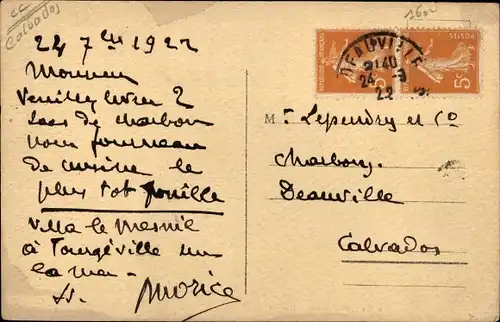 CC
Calvados
24 7bre 1922
Monsieur
Veuillez livrer 2
sacs de charbon
pour fourneau
de cuisine le
plus tot possible
Villa le Mesnil
à Tourgéville sur
la mer
Morice
DEAUVILLE
24 - 9
22
POSTES
5c
5c
M
r Lependry et Co
Charbons
Deauville
Calvados